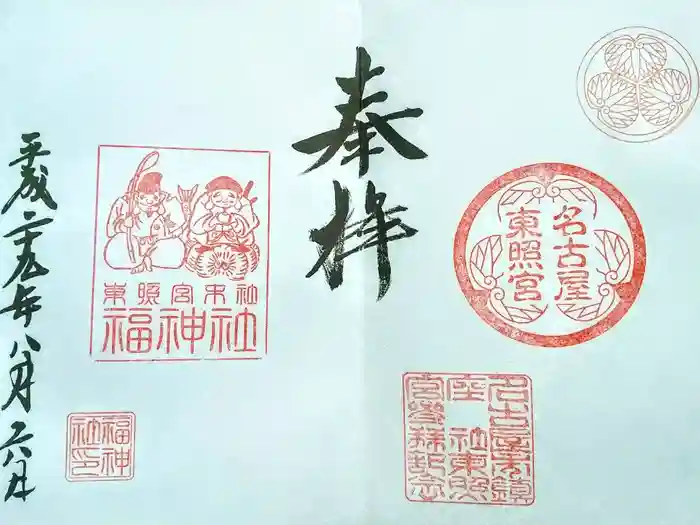 名古屋
東照宮
名古屋市鎮
座 社東照
宮参拝記念
奉拝
東照宮末社
福神社
福神
社印
平成二十九年八月二六日